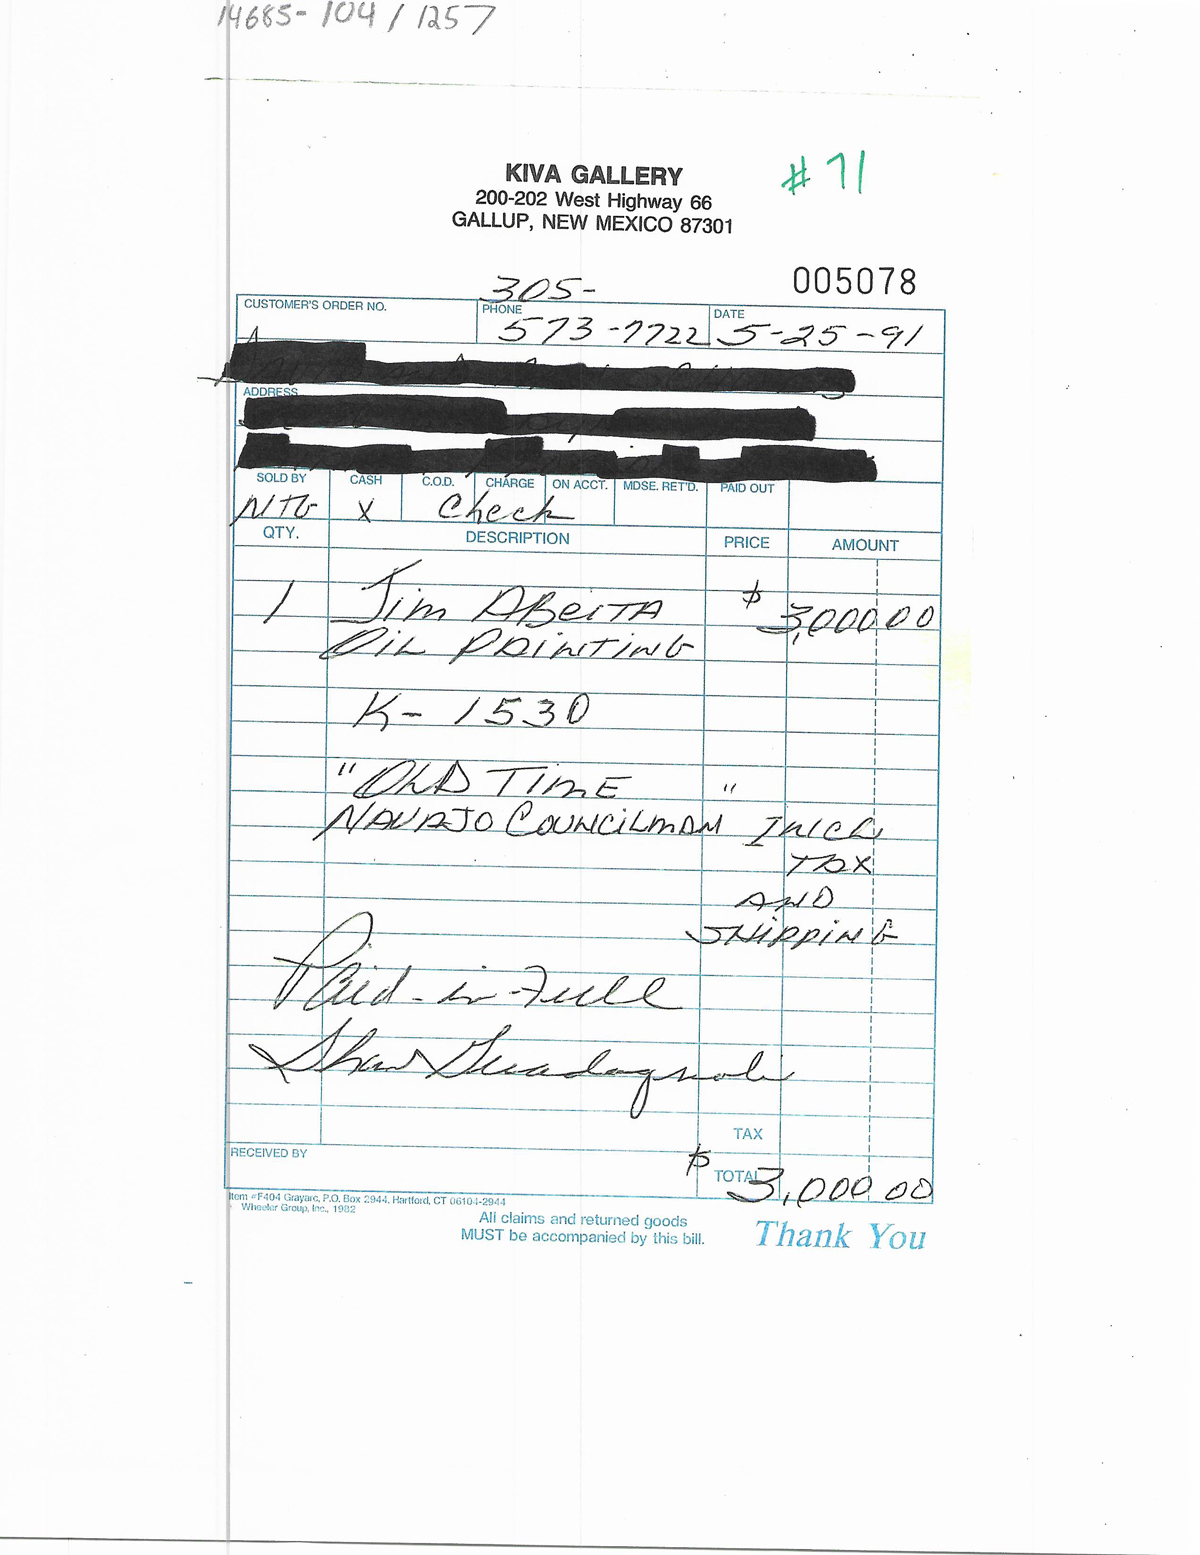 14685-104/1257
KIVA GALLERY
# 71
200-202 West Highway 66
GALLUP, NEW MEXICO 87301
305-
005078
CUSTOMER'S ORDER NO.
PHONE
573-7722
DATE
5-25-91
ADDRESS
SOLD BY CASH C.O.D. CHARGE ON ACCT. MDSE. RET'D. PAID OUT
NTG X Check
QTY. DESCRIPTION PRICE AMOUNT
1 Jim ABEITA $ 3,000 00
OIL PAINTING
K-1530
"OLD TIME "
NAVAJO COUNCILMAN INCL
TAX
AND
SHIPPING
Paid-in-Full
Guadagnoli
TAX
RECEIVED BY
$ TOTAL 3,000 00
Item #F404 Grayarc, P.O. Box 2944, Hartford, CT 06104-2944
Wheeler Group, Inc., 1982
All claims and returned goods
MUST be accompanied by this bill.
Thank You